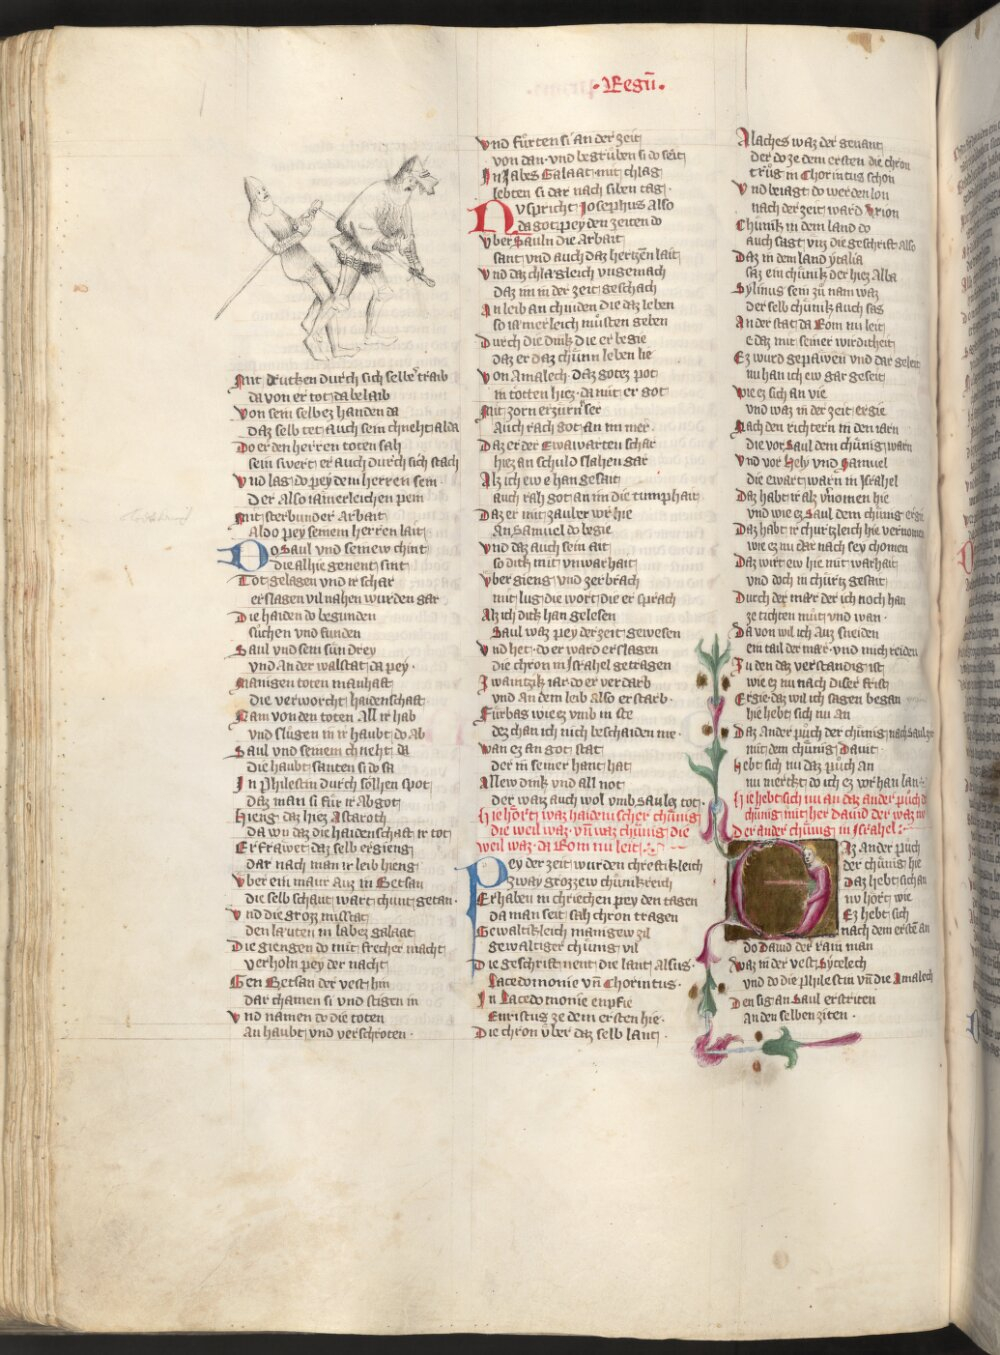 ·Regū·
Mit drukken durch sich selbe traib
da von er tot da belaib
Von sein selbez handen da
daz selb tet auch sein chneht alda
Do er den herren toten sah
sein swert er auch durch sich stach
Vnd lag do pey dem herren sein
Der also iamerleichen pein
Mit sterbunder arbait
Aldo pey seinem herren lait
Do Saul vnd seinew chint
die alhie genent sint
Tot gelagen vnd ir schar
erslagen vil nahen wurden gar
Die haiden do begunden
suchen vnd funden
Saul vnd sein sun drey
vnd an der walstat da pey
Manigen toten manhaft
die verworcht haidenschaft
Nam von den toten all ir hab
vnd slugen in ir haubt do ab
Saul vnd seinem chneht da
die haubt santen si do sa
In Philestin durch solhen spot
daz man si fur ir abgot
Hieng daz hiez Astaroth
da wu daz die haidenschaft ir tot
Erfrawet daz selb ergieng
dar nach man ir leib hieng
Vber ein maur auz in Betsan
die selb schant wart chunt getan
Vnd die grozz missetat
den lauten in Iabez galaat
Die giengen do mit frecher macht
verholn pey der nacht
Gen Betsan der vest hin
dar chamen si vnd stigen in
Vnd namen do die toten
an haubt vnd verschroten
Vnd fůrten si an der zeit
von dan vnd begruben si do seit
In Iabes Galaat mit chlag
lebten si dar nach siben tag
Nv spricht Iosephus also
da got pey den zeiten do
Vber Sauln die arbait
sant vnd auch daz hertzen lait
Vnd daz chlagleich vngemach
daz im in der zeit geschach
An leib an chinden die daz leben
so iamerleich můsten geben
Durch die dink die er begie
daz er daz chünn leben lie
Von Amalech daz gotez pot
in totten hiez da mit er got
Mit zorn erzürnt ser
Auch rach got an im mer
Daz er der Ewawarten schar
hiez an schuld slahen gar
Alz ich ew e han gesait
auch rah got an im die tumphait
Daz er mit zauber worhte
An Samuel do begie
Vnd daz auch sein ait
so dikk mit vnwarhait
Vbergieng vnd zerbrach
mit lug die wort die er sprach
Alz ich dikk han gelesen
Saul waz pey der zeit gewesen
Vnd het do er ward erslagen
die chron in Israhel getragen
Zwaintzik iar do er verdarb
vnd an dem leib also erstarb
Fürbas wie ez vmb in ste
dez chan ich nich beschaiden me
Wan ez an got stat
der in seiner hant hat
Allew dink vnd all not
der waiz auch wol vmb saulez tot
Hie hört waz haidenischer chünig
die weil waz vn̄ waz chünig die
weil waz da Rom nu leit
Pey der zeit wurden chrestikleich
Zway grozzew chünikreich
Erhaben in chriechen pey den tagen
da man seit sah chron tragen
Gewaltikleich manigew zil
gewaltiger chünig vil
Die geschrist nent die lant alsus
Lacedomonie vn̄ Chorintus
In Lacedomonie enpfie
Euristus ze dem ersten hie
Die chron vber daz selb lant
Alaches waz der genant
der do ze dem ersten die chron
trůg in Chorintus schon
Vnd beiagt do werden lon
nach der zeit ward Vrion
Chünik in dem land do
auch sagt vnz die geschrift also
Daz in dem land ytalia
saz ein chünik der hiez Alba
Syluius sein zů nam waz
der selb chünik auch sas
An der stat da Rom nu leit
e daz mit seiner wirdicheit
Ez wurd gepawen vnd dar geleit
nu han ich ew gar geseit
Wie ez sich an vie
vnd waz in der zeit ergie
Nach den richtern in den iarn
die vor Saul dem chünig warn
Vnd vor Hely vnd Samuel
die ewart warn in Israhel
Daz habt ir alz vernomen hie
vnd wie ez Saul dem chünig ergie
Daz habt ir churtzleich hie vernomen
wie ez nu dar nach sey chomen
Daz wirt ew hie mit warhait
vnd doch in chürtz gesait
Durch der mær der ich noch han
ze tichten můt vnd wan
Da von wil ich auz sneiden
ein tail der mær vnd mich reiden
Zu den daz verstandig ist
wie ez nu nach diser frist
Ergie daz wil ich sagen began
hie hebt sich nu an
Daz ander půch der chünig nach Saul
mit dem chünig Dauit
Hebt sich nu daz půch an
nu merkt do ich ez vor han lan
Hie hebt sich nu an daz ander půch d
chünig mit her Dauid der waz nu
Der ander chünig in Israhel
Daz ander půch
der chünig hie
Daz hebt sich an
nu hört wie
Ez hebt sich
nach dem ersten an
do Dauid der rain man
Waz in der vest Sycelech
vnd do die Philestin vn̄ die Amalech
Den sig an Saul erstriten
an den selben ziten